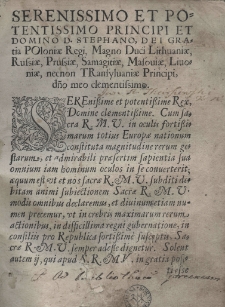 SERENISSIMO ET PO-
TENTISSIMO PRINCIPI ET
DOMINO D. STEPHANO, DEI GRA-
tia POloniæ Regi, Magno Duci Lithuaniæ,
Rußiæ, Prußiæ, Samagitiæ, Masouiæ, Liuo-
niæ, necnon TRansyluaniæ Principi,
dño meo clementissimo.
SERenissime et potentissime Rex,
Domine clementissime. Cum sa-
cra R.M.V. in oculis fortissi-
marum totius Europæ nationum
constituta magnitudine rerum ge-
starum, et admirabili præsertim sapientia sua
omnium iam hominum oculos in se conuerterit,
æquum est vt et nos Sacræ R.M.V. subditi de-
bitam animi subiectionem Sacræ R.M.V.
modis omnibus declaremus, et diuinum etiam nu-
men precemur, vt in crebris maximarum rerum
actionibus, in difficillima regni gubernatione, in
consilijs pro Republica fortissime susceptis Sa-
cræ R.M.V. semper adesse dignetur. Solent
autem ij, qui apud S.R.M.V. in gratia posse